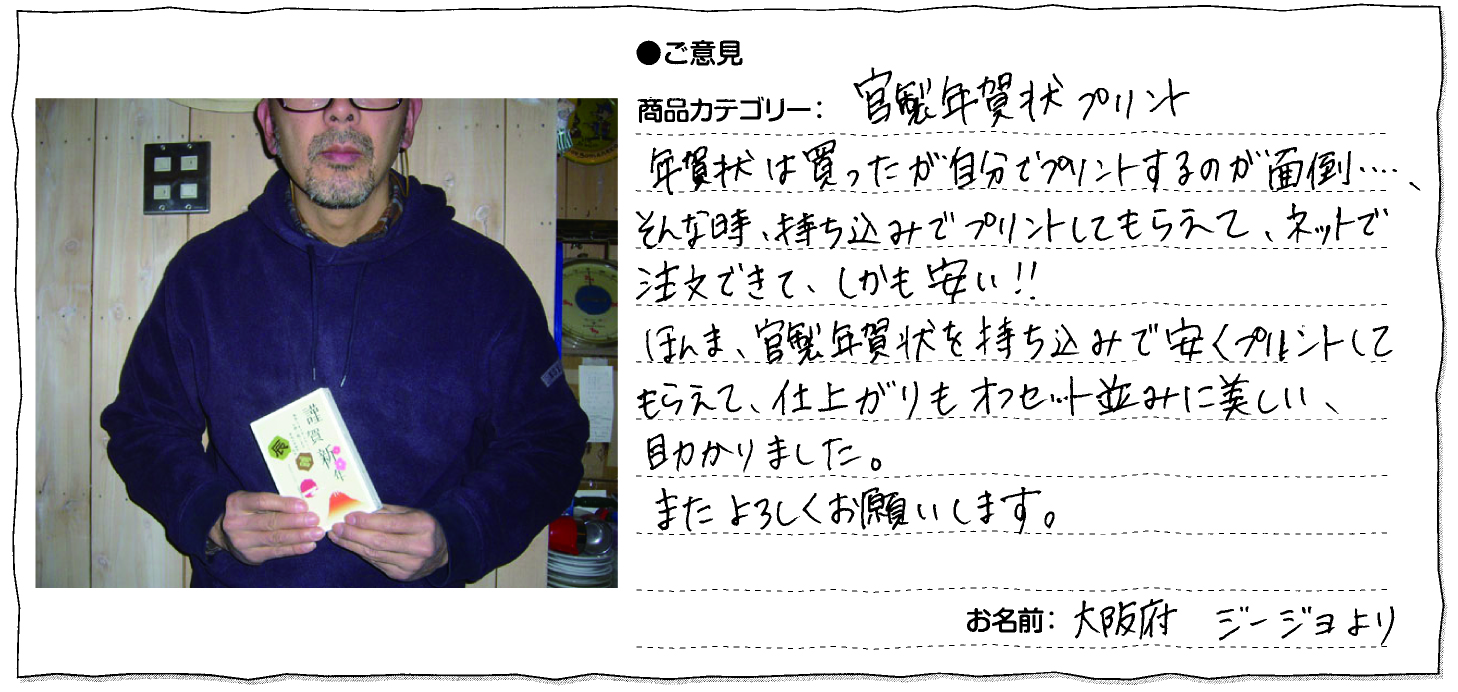 ●ご意見
商品カテゴリー： 官製年賀状プリント
年賀状は買ったが自分でプリントするのが面倒‥‥、
そんな時、持ち込みでプリントしてもらえて、ネットで
注文できて、しかも安い!!
ほんま、官製年賀状を持ち込みで安くプリントして
もらえて、仕上がりもオフセット並みに美しい、
助かりました。
またよろしくお願いします。
お名前： 大阪府 ジージョより
謹賀
新年
辰